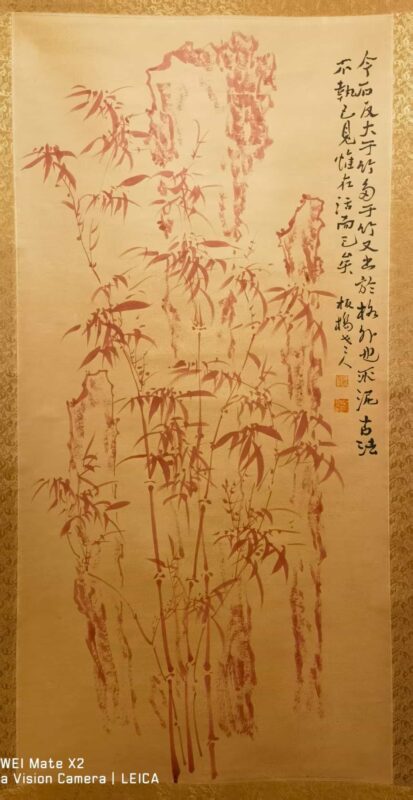 今石反大于竹多于竹又出於格外也不泥古法
不執己見惟在活而已矣 板橋老人
WEI Mate X2
a Vision Camera | LEICA